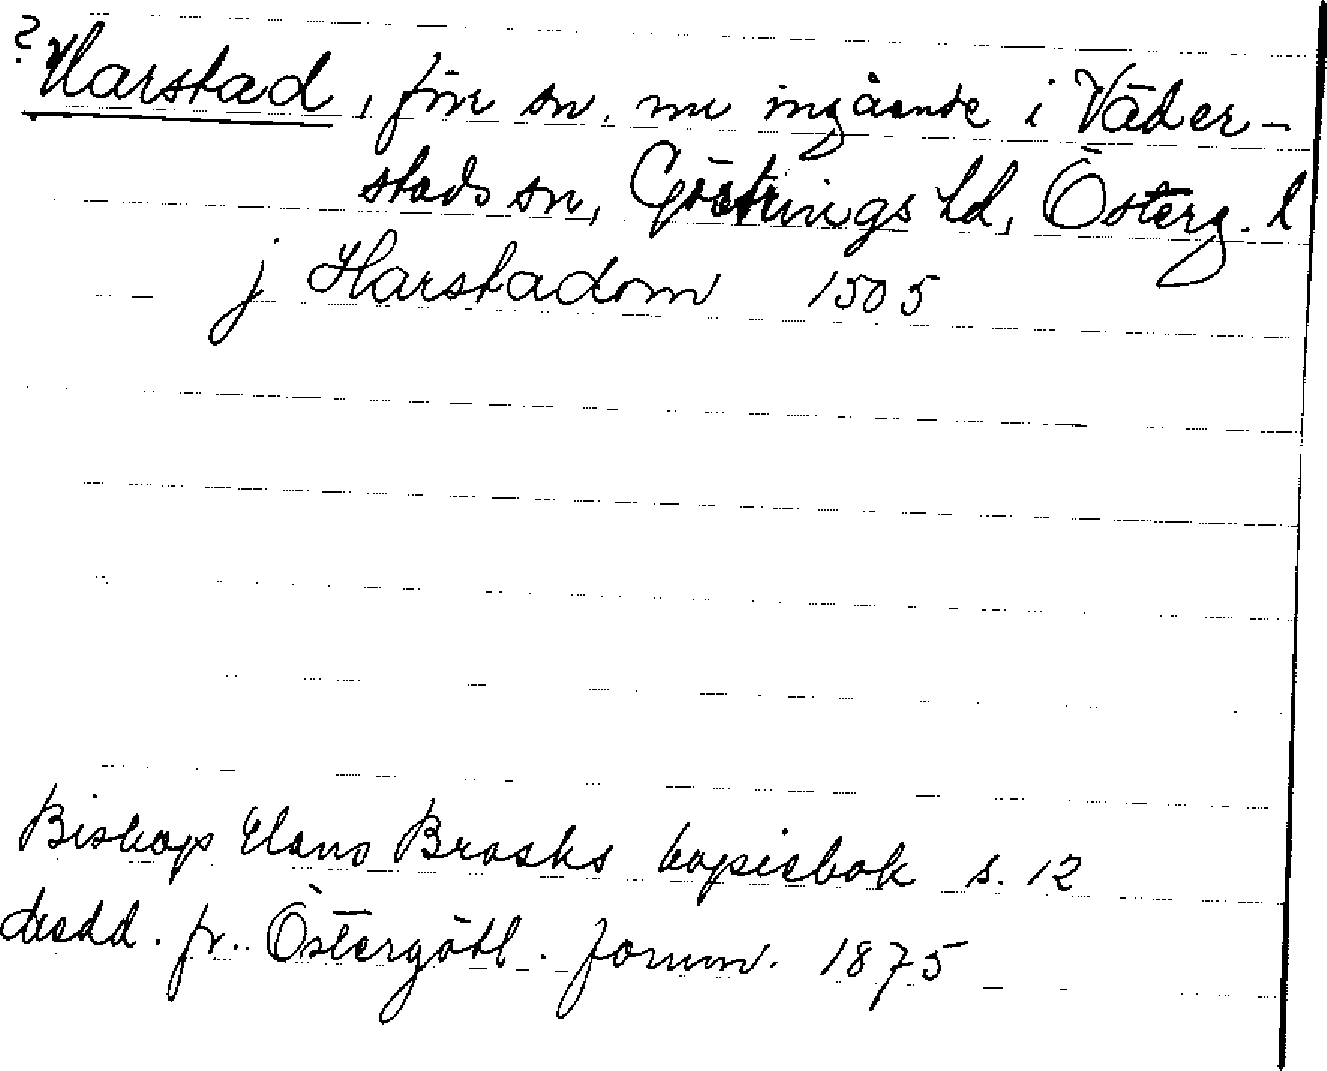 ? Harstad, förr sn. nu ingående i Väder-
stads sn, Göstrings hd, Österg. l
j Harstadom 1505
Biskop Hans Brasks kopiebok s. 12
Medd. fr. Östergötl. fornm. 1875